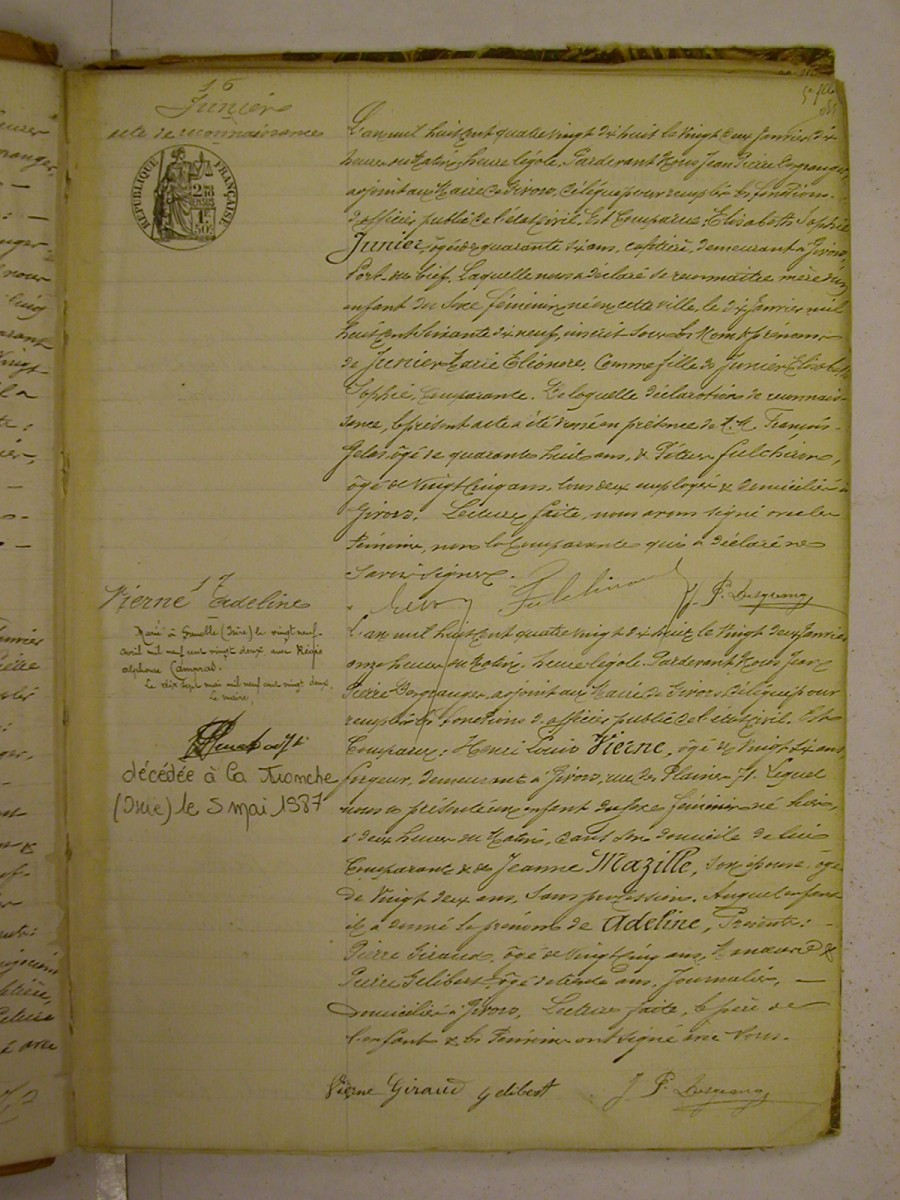 16
Junier
acte de reconnaissance
RÉPUBLIQUE FRANÇAISE
L'an mil huit cent quatre vingt dix huit le vingt deux Janvier, dix
heures du Matin, heure légale, Pardevant Nous Jean Pierre
adjoint au Maire de Givors, délégué pour remplir les fonctions
d'officier public de l'état civil. Est Comparue, Elisabeth Sophie
Junier, âgée de quarante six ans, demeurant à Givors,
Port du Bief. Laquelle nous a déclaré se reconnaître mère d'un
enfant du sexe féminin, né en cette ville, le dix Janvier mil
huit cent soixante dix neuf, inscrit sous les Nom & prénoms
de Junier Marie Eléonore, comme fille de Junier Elisabeth
Sophie, Comparante. De laquelle déclaration de reconnais-
sance, le présent acte a été dressé en présence de M.M. François
âgé de quarante huit ans, & Fulchiron,
âgé de vingt cinq ans, tous deux employés & domiciliés à
Givors. Lecture faite, nous avons signé avec les
témoins, non la Comparante qui a déclaré ne
savoir signer.
Fulchiron J. P.
17
Vierne Adeline
Marié à Grenelle (Isère) le vingt neuf
avril mil neuf cent vingt deux avec Régis
alphonse Campras.
Le dix sept mai mil neuf cent vingt deux,
Le maire,
décédée à La Tronche
(Isère) le 5 mai 1987
L'an mil huit cent quatre vingt dix huit, le vingt deux Janvier
onze heures du Matin, heure légale, Pardevant Nous Jean
Pierre adjoint au Maire de Givors, délégué pour
remplir les fonctions d'officier public de l'état civil. Est
Comparu : Henri Louis Vierne, âgé de vingt six ans,
forgeur, demeurant à Givors, rue des Plaines 71. Lequel
nous a présenté un enfant du sexe féminin né hier,
à deux heures du Matin, dans son domicile de lui
Comparant & de Jeanne Mazille, son épouse, âgée
de vingt deux ans, sans profession. Auquel enfant
il a donné le prénom de Adeline, Présents :
Pierre Giraud, âgé de vingt cinq ans, &
Pierre Gelibert, âgé de trente ans, Journalier,
domiciliés à Givors, Lecture faite, le père de
l'enfant & les témoins ont signé avec Nous.
Vierne Giraud Gelibert J. P.